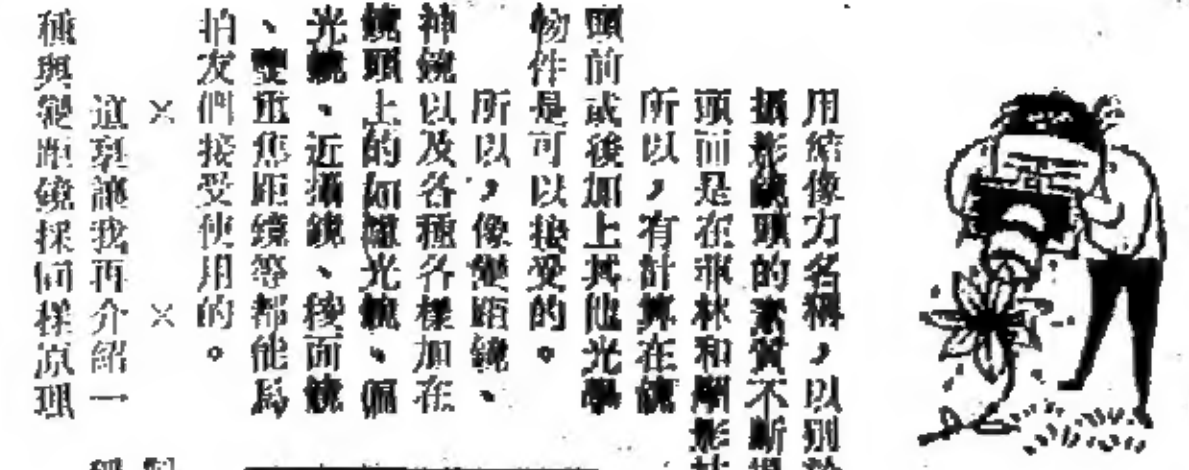 用結像力名稱，以別於
攝影鏡頭的素質不斷提
頭而是在菲林和攝影技
所以，有計算在鏡
頭前或後加上其他光學
物件是可以接受的。
所以，像變距鏡、
神鏡以及各種各樣加在
鏡頭上的如濾光鏡、偏
光鏡、近攝鏡、按面鏡
、雙重焦距鏡等都能爲
拍友們接受使用的。
× ×
這裏讓我再介紹一
種與變距鏡採同樣原理